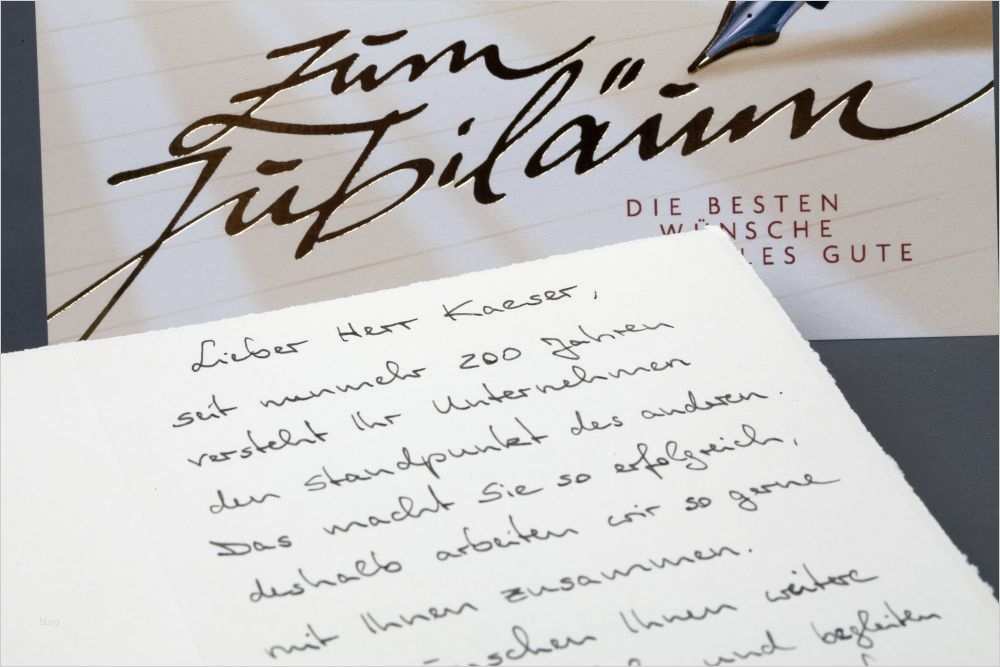 zum
Jubiläum
DIE BESTEN
WÜNSCHE
GUTE
Lieber Herr Kaeser,
seit nunmehr 200 Jahren
versteht Ihr Unternehmen
den Standpunkt des anderen.
Das macht Sie so erfolgreich,
deshalb arbeiten wir so gerne
mit Ihnen zusammen.
Ihnen weitere
und begleiten